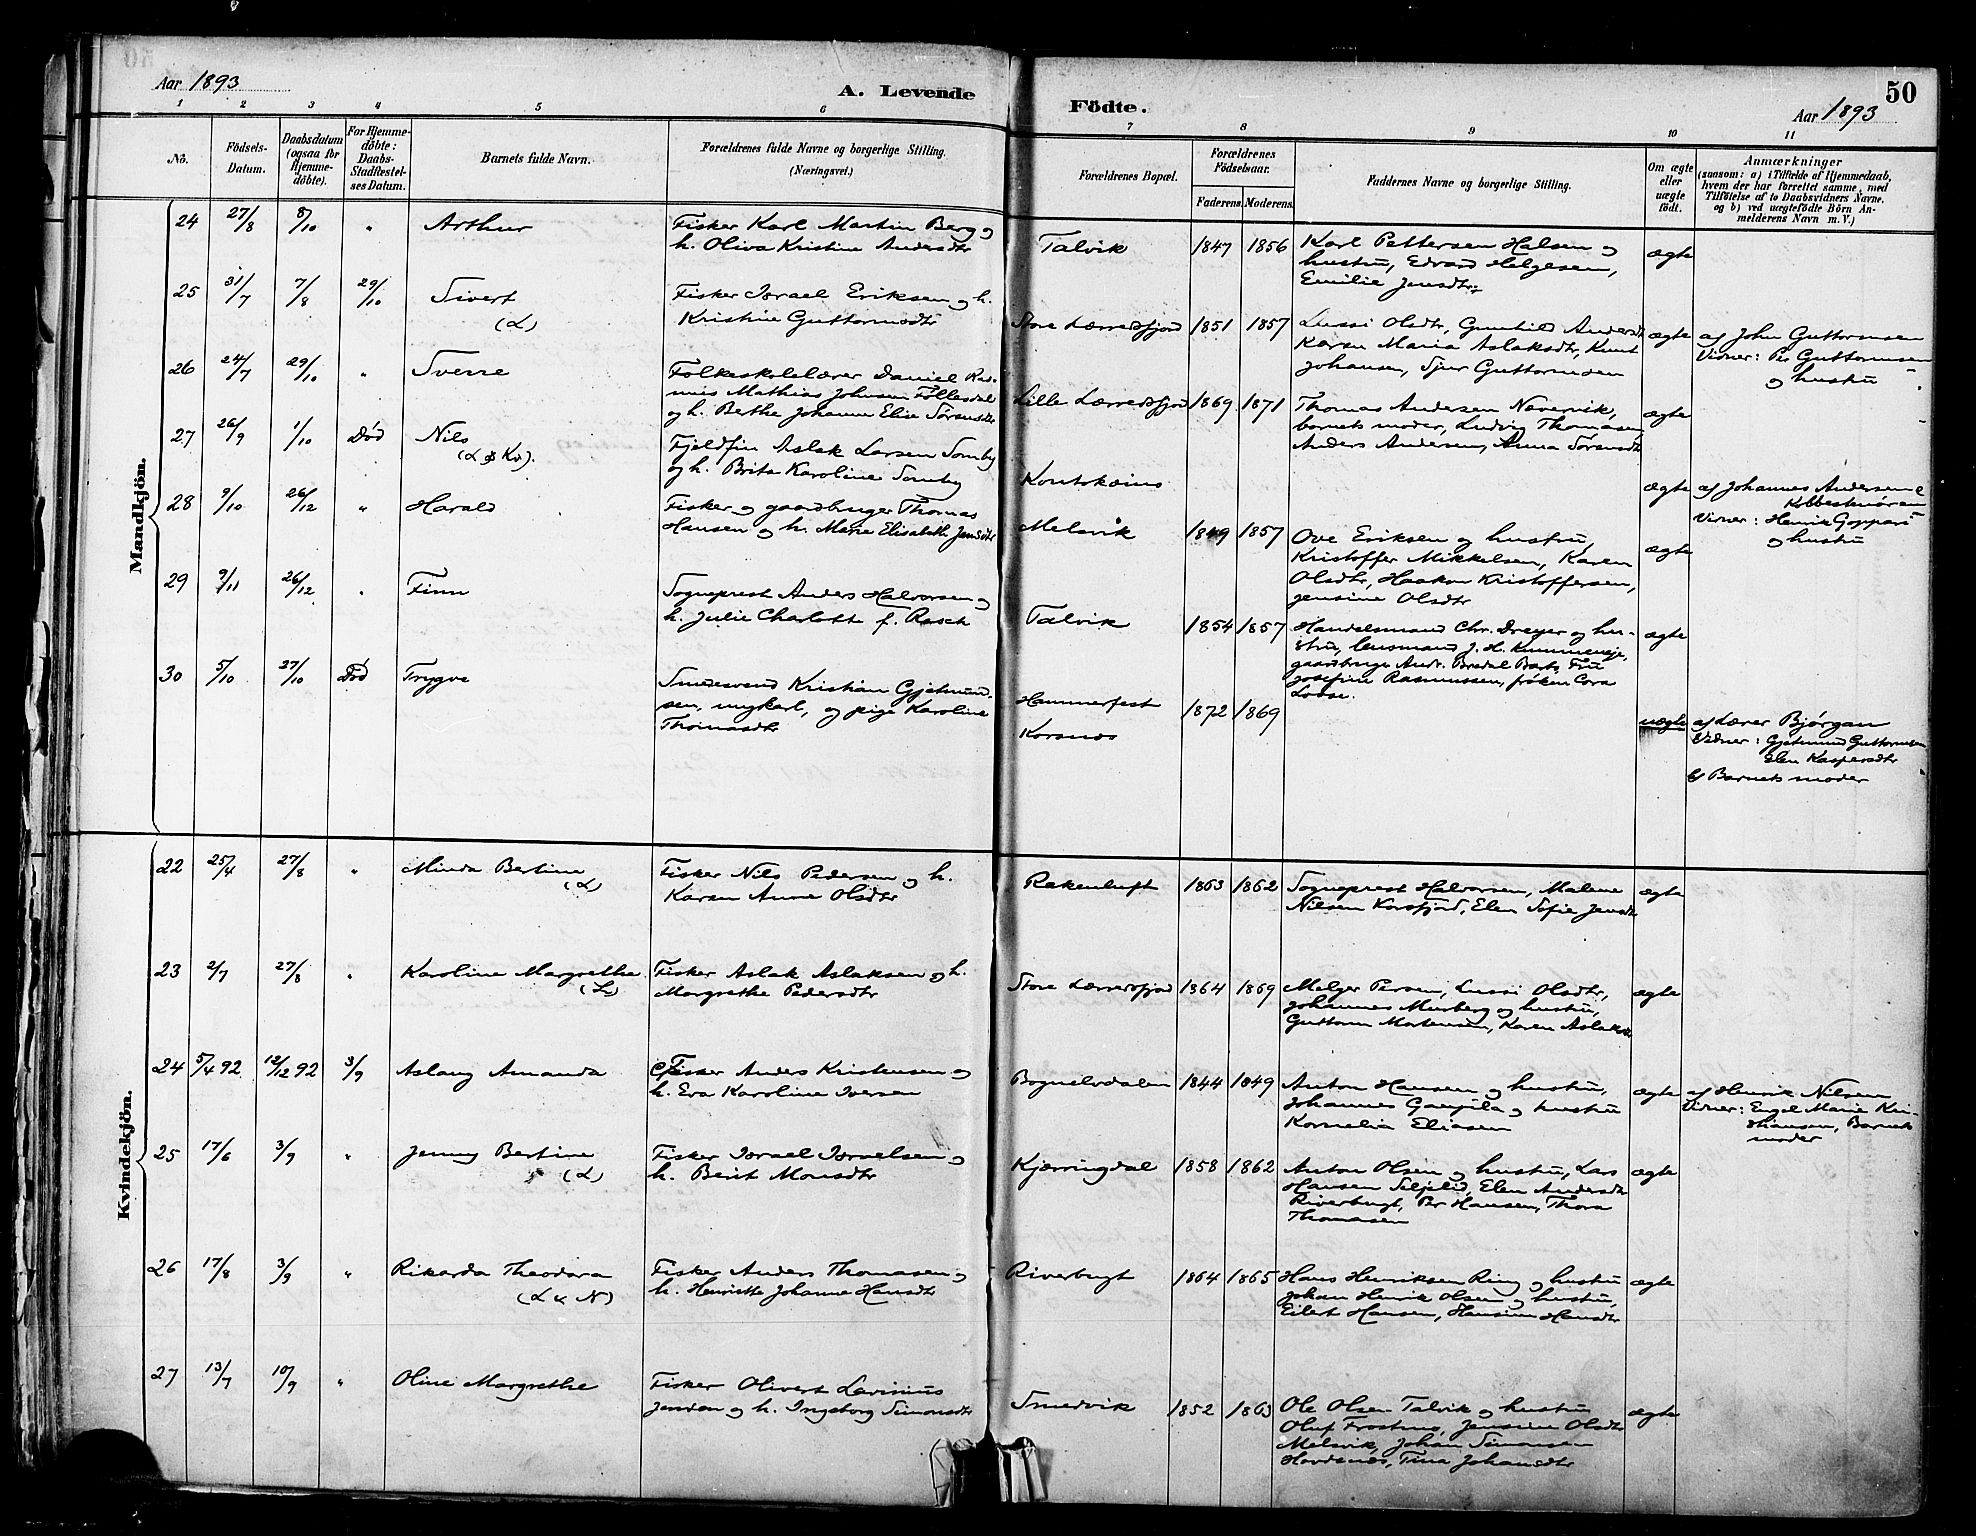 Aar 1893
A. Levende
Födte.
Aar 1893
50
1 2 3 4 5 6 7 8 9 10 11
No.
Födsels-
Datum.
Daabsdatum
(ogsaa for
Hjemme-
döbte).
For Hjemme-
döbte:
Daabs-
Stadfæstel-
ses Datum.
Barnets fulde Navn.
Forældrenes fulde Navne og borgerlige Stilling.
(Næringsvei.)
Forældrenes Bopæl.
Forældrenes
Födselsaar.
Faderens. Moderens.
Faddernes Navne og borgerlige Stilling.
Om ægte
eller
uægte
födt.
Anmærkninger
(saasom: a) i Tilfælde af Hjemmedaab,
hvem der har forrettet samme, med
Tilföielse af to Daabsvidners Navne.
og b) ved uægtefödte Börn An-
melderens Navn m. V.)
Mandkjön.
24 27/8 8/10 " Arthur
Fisker Karl Martin Berg og
h. Oliva Kristine Andersdtr
Talvik 1847 1856
Karl Pettersen Halsen og
hustru, Edvard Helgesen,
Emilie Jensdtr.
ægte
25 31/7 7/8 29/10 Sivert
(L)
Fisker Israel Eriksen og h.
Kristine Guttormsdtr
Store Lærredsfjord 1851 1857
Lussi Olsdtr, Gunhild Andersdt
Karen Maria Aslaksdtr, Knut
Johansen, Sjur Guttormsen
ægte
af John Guttormsen
Vidner: Per Guttormsen
og hustru
26 24/7 29/10 " Sverre
Folkeskolelærer Daniel Ras-
mus Mathias Johnsen Føllesdal
og h. Berthe Johanne Elise Sørensdtr
Lille Lærredsfjord 1869 1871
Thomas Andersen Nævervik,
barnets moder, Ludvig Thomasen
Anders Andersen, Anna Sørensdtr
ægte
27 26/9 1/10 Død Nils
(L & Kv).
Fjeldfin Aslak Larsen Somby
og h. Brita Karoline Somby
Koutokæino
ægte
af Johannes Andersen
Vidner: Henrik
og hustru
28 9/10 26/12 " Harald
Fisker og gaardbruger Thomas
Hansen og h. Marie Elisabeth Jensdtr
Melsvik 1849 1857
Ove Eriksen og hustru,
Kristoffer Mikkelsen, Karen
Olsdtr, Haakon Kristoffersen,
Jensine Olsdtr
ægte
29 9/11 26/12 " Finn
Sogneprest Anders Halvorsen og
h. Julie Charlott f. Rasch
Talvik 1854 1857
Handelsmand Chr. Dreyer og hu-
stru, lensmand J. H. Kummeneje,
gaardbruger Andr. Bredal Fru
Josefine Rasmussen, frøken Cora
ægte
30 5/10 27/10 Død Trygve
Smedesvend Kristian Gjetmund-
sen, ungkarl, og pige Karoline
Thomasdtr
Hammerfest
Korsnes
1872 1869
uægte
af Lærer Bjørgan
Vidner: Gjetmund Guttormsen
Elen Kaspersdtr
b) Barnets moder
Kvindekjön.
22 25/4 27/8 " Minda Bertine
(L)
Fisker Nils Pedersen og h.
Karen Anne Olsdtr
1863 1862
Sogneprest Halvorsen, Malene
Nilsen Korsfjord, Elen Sofie Jensdt
ægte
23 2/7 27/8 " Karoline Margrethe
(L)
Fisker Aslak Aslaksen og h.
Margrethe Pedersdtr
Store Lærredsfjord 1864 1869
Persen, Lussi Olsdtr,
Johannes Murberg og hustru,
Guttorm Mortensen, Karen Aslaksdt
ægte
24 5/4 92 12/12 92 3/9 Aslaug Amanda
Fisker Anders Kristensen og
h. Eva Karoline Iversen
Bognelvdalen 1844 1849
Anton Hansen og hustru,
Johannes og hustru
Kornelia Eliasen
ægte
af Henrik Nilsen
Vidner: Engel Marie Kri-
stiansen, Barnets
moder
25 17/6 3/9 " Jenny Bertine
(L)
Fisker Israel Israelsen og
h. Berit Monsdtr
Kjærringdal 1858 1862
Anton Olsen og hustru, Lars
Hansen Seljelid, Elen Andersdt
Riverbugt, Per Hansen, Thora
Thomasen
ægte
26 17/8 3/9 " Rikarda Theodora
(L & N)
Fisker Anders Thomasen og
h. Henriette Johanne Hansdtr
Riverbugt 1864 1865
Hans Henriksen Ring og hustru
Johan Henrik Olsen og hustru,
Eilert Hansen, Hansine Hansdtr
ægte
27 13/7 10/9 " Oline Margrethe
Fisker Olivert Lavinius
Jensen og h. Ingeborg Simonsdtr
Smedvik 1852 1863
Ole Olsen Talvik og hustru
Oluf Frostmo, Jensine Olsdtr
Melsvik, Johan Simonsen
Tina Johansdtr
ægte